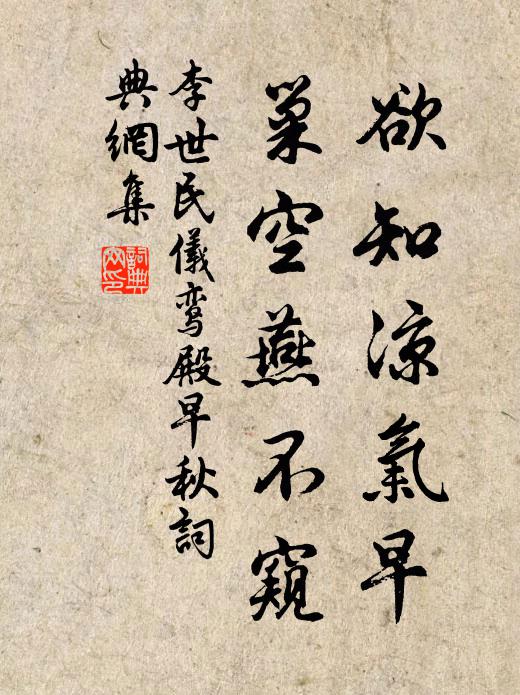 欲知涼氣早
巢空燕不窺
李世民儀鸞殿早秋詞
典網集
詞典
网印